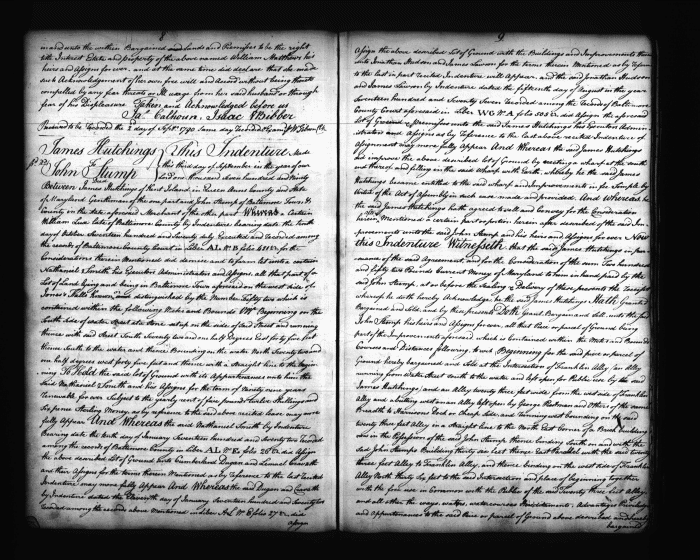 8
in and unto the within Bargained Lands and Premises to be the right
title Interest Estate and property of the above named William Matthews his
heirs and Assigns for ever and at the same time did declare that she made
such Acknowledgement of her own free will and accord without being thereto
compelled by any fear threats or ill usage from her said husband or through
fear of his Displeasure Taken and Acknowledged before us
Jas. Calhoun, Isaac
Received to be Recorded the 2 day of Sept. 1790 same day Recorded
James Hutchings This Indenture made
To this third day of September in the year of our
John Stump Lord one thousand seven hundred and ninety
Between James Hutchings of Kent Island in Queen Anns County and State
of Maryland Gentleman of the one part and John Stump of Baltimore Town &
County in the state aforesaid Merchant of the other part Whereas a Certain
William late of Baltimore County by Indenture bearing date the tenth
day of October Seventeen hundred and Seventy duly Executed and recorded among
the records of Baltimore County Court in Liber AL No. B folio for the
Consideration therein Mentioned did demise and to farm let unto a certain
Nathaniel Smith his Executors Administrators and Assigns all that part of a
Lot of Land lying and being in Baltimore Town aforesaid on the west side of
Jones's Falls known and distinguished by the Number Fifty two which is
contained within the following Metes and Bounds Viz. Beginning on the
South side of water street at a stone set up on the side of said Street and running
thence with said Street South Seventy two and one half degrees East forty five feet
thence South to the water and thence Bounding on the water North Seventy two and
one half degrees west forty five feet and thence with a Straight line to the Beginn
ing To Hold the said lot of Ground with its Appurtenances unto him the
said Nathaniel Smith and his Assigns for the term of Ninety nine years
renewable for ever Subject to the yearly rent of five pounds twelve Shillings and
Six pence Sterling Money, as by reference to the said above recited lease may more
fully Appear And Whereas the said Nathaniel Smith by Indenture
bearing date the tenth day of January Seventeen hundred and seventy two recorded
among the records of Baltimore County in Liber AL No. folio did Assign
the above described lot of Ground unto Cumberland Dugan and Lemuel Cravath
and their Assigns for the terms therein Mentioned as by Reference to the last recited
Indenture may more fully Appear And Whereas the said Dugan and Cravath
by Indenture dated the Eleventh day of January Seventeen hundred and Seventy
recorded among the records above Mentioned in Liber AL No. folio did
Assign
9
Assign the above described Lot of Ground with the Buildings and Improvements thereon
unto Jonathan Hudson and James Lawson for the terms therein Mentioned as by reference
to the last in part recited Indenture will Appear, and the said Jonathan Hudson
and James Lawson by Indenture dated the fifteenth day of August in the year
Seventeen hundred and Seventy Seven recorded among the records of Baltimore
County Court aforesaid in Liber WG No. A folio 503 did Assign the aforesaid
lot of Ground & Premises unto the said James Hutchings his Executors Admin
istrators and Assigns as by reference to the last above recited Indenture of
Assignment may more fully Appear And Whereas the said James Hutchings
did improve the above described lot of Ground by erecting a wharf at the south
end thereof and filling in the said wharf with Earth, whereby he the said James
Hutchings became entitled to the said wharf and Improvements in fee Simple by
virtue of the Act of Assembly in such case made and provided. And Whereas he
the said James Hutchings hath agreed to sell and Convey for the Consideration
herein Mentioned a certain part or portion herein after described of the said Im
provements unto the said John Stump and his heirs and Assigns for ever Now
this Indenture Witnesseth that the said James Hutchings in pur
suance of the said Agreement and for the Consideration of the sum Two hundred
and fifty two Pounds Current Money of Maryland to him in hand paid by the
said John Stump, at or before the Sealing & Delivery of these presents the receipt
whereof he doth hereby Acknowledge, he the said James Hutchings Hath Granted
Bargained and Sold and by these present Doth Grant Bargain and Sell unto the said
John Stump his heirs and Assigns for ever, all that piece or parcel of Ground being
part of the Improvements aforesaid which is Contained within the Metes and Bounds
Courses and Distances following to wit Beginning for the said piece or parcel of
Ground hereby bargained and Sold at the Intersection of Franklin Alley (an Alley
running from Water Street South to the water and left open for Public use by the said
James Hutchings) and an Alley twenty three feet wide from the east side of Franklin
Alley and a butting west on an Alley left open by George and Others of the same
Breadth to Harrisons Dock or Cheap Side and running west bounding on the
twenty three feet alley in a Straight line to the North East Corner of a Brick building
now in the Possession of the said John Stump thence bounding South on and with the
said John Stumps Building thirty six feet thence East Parallel with the said twenty
three feet Alley to Franklin Alley, and thence bounding on the west side of Franklin
Alley North thirty Six feet to the said Intersection and place of beginning together
with the free use in Common with the Public of the said twenty three feet Alley
and all other the ways, waters, watercourses Emoluments, Advantages Priviledges
and Appurtenances to the said Piece or parcel of Ground above described and hereby
bargained